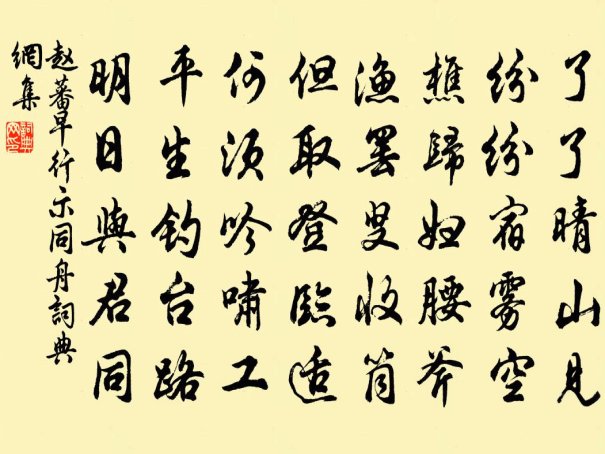 了了晴山見
紛紛宿雾空
樵歸妇腰斧
漁罢叟收筒
但取登臨适
何須吟嘯工
平生釣台路
明日與君同
赵蕃早行示同舟詞典
網集